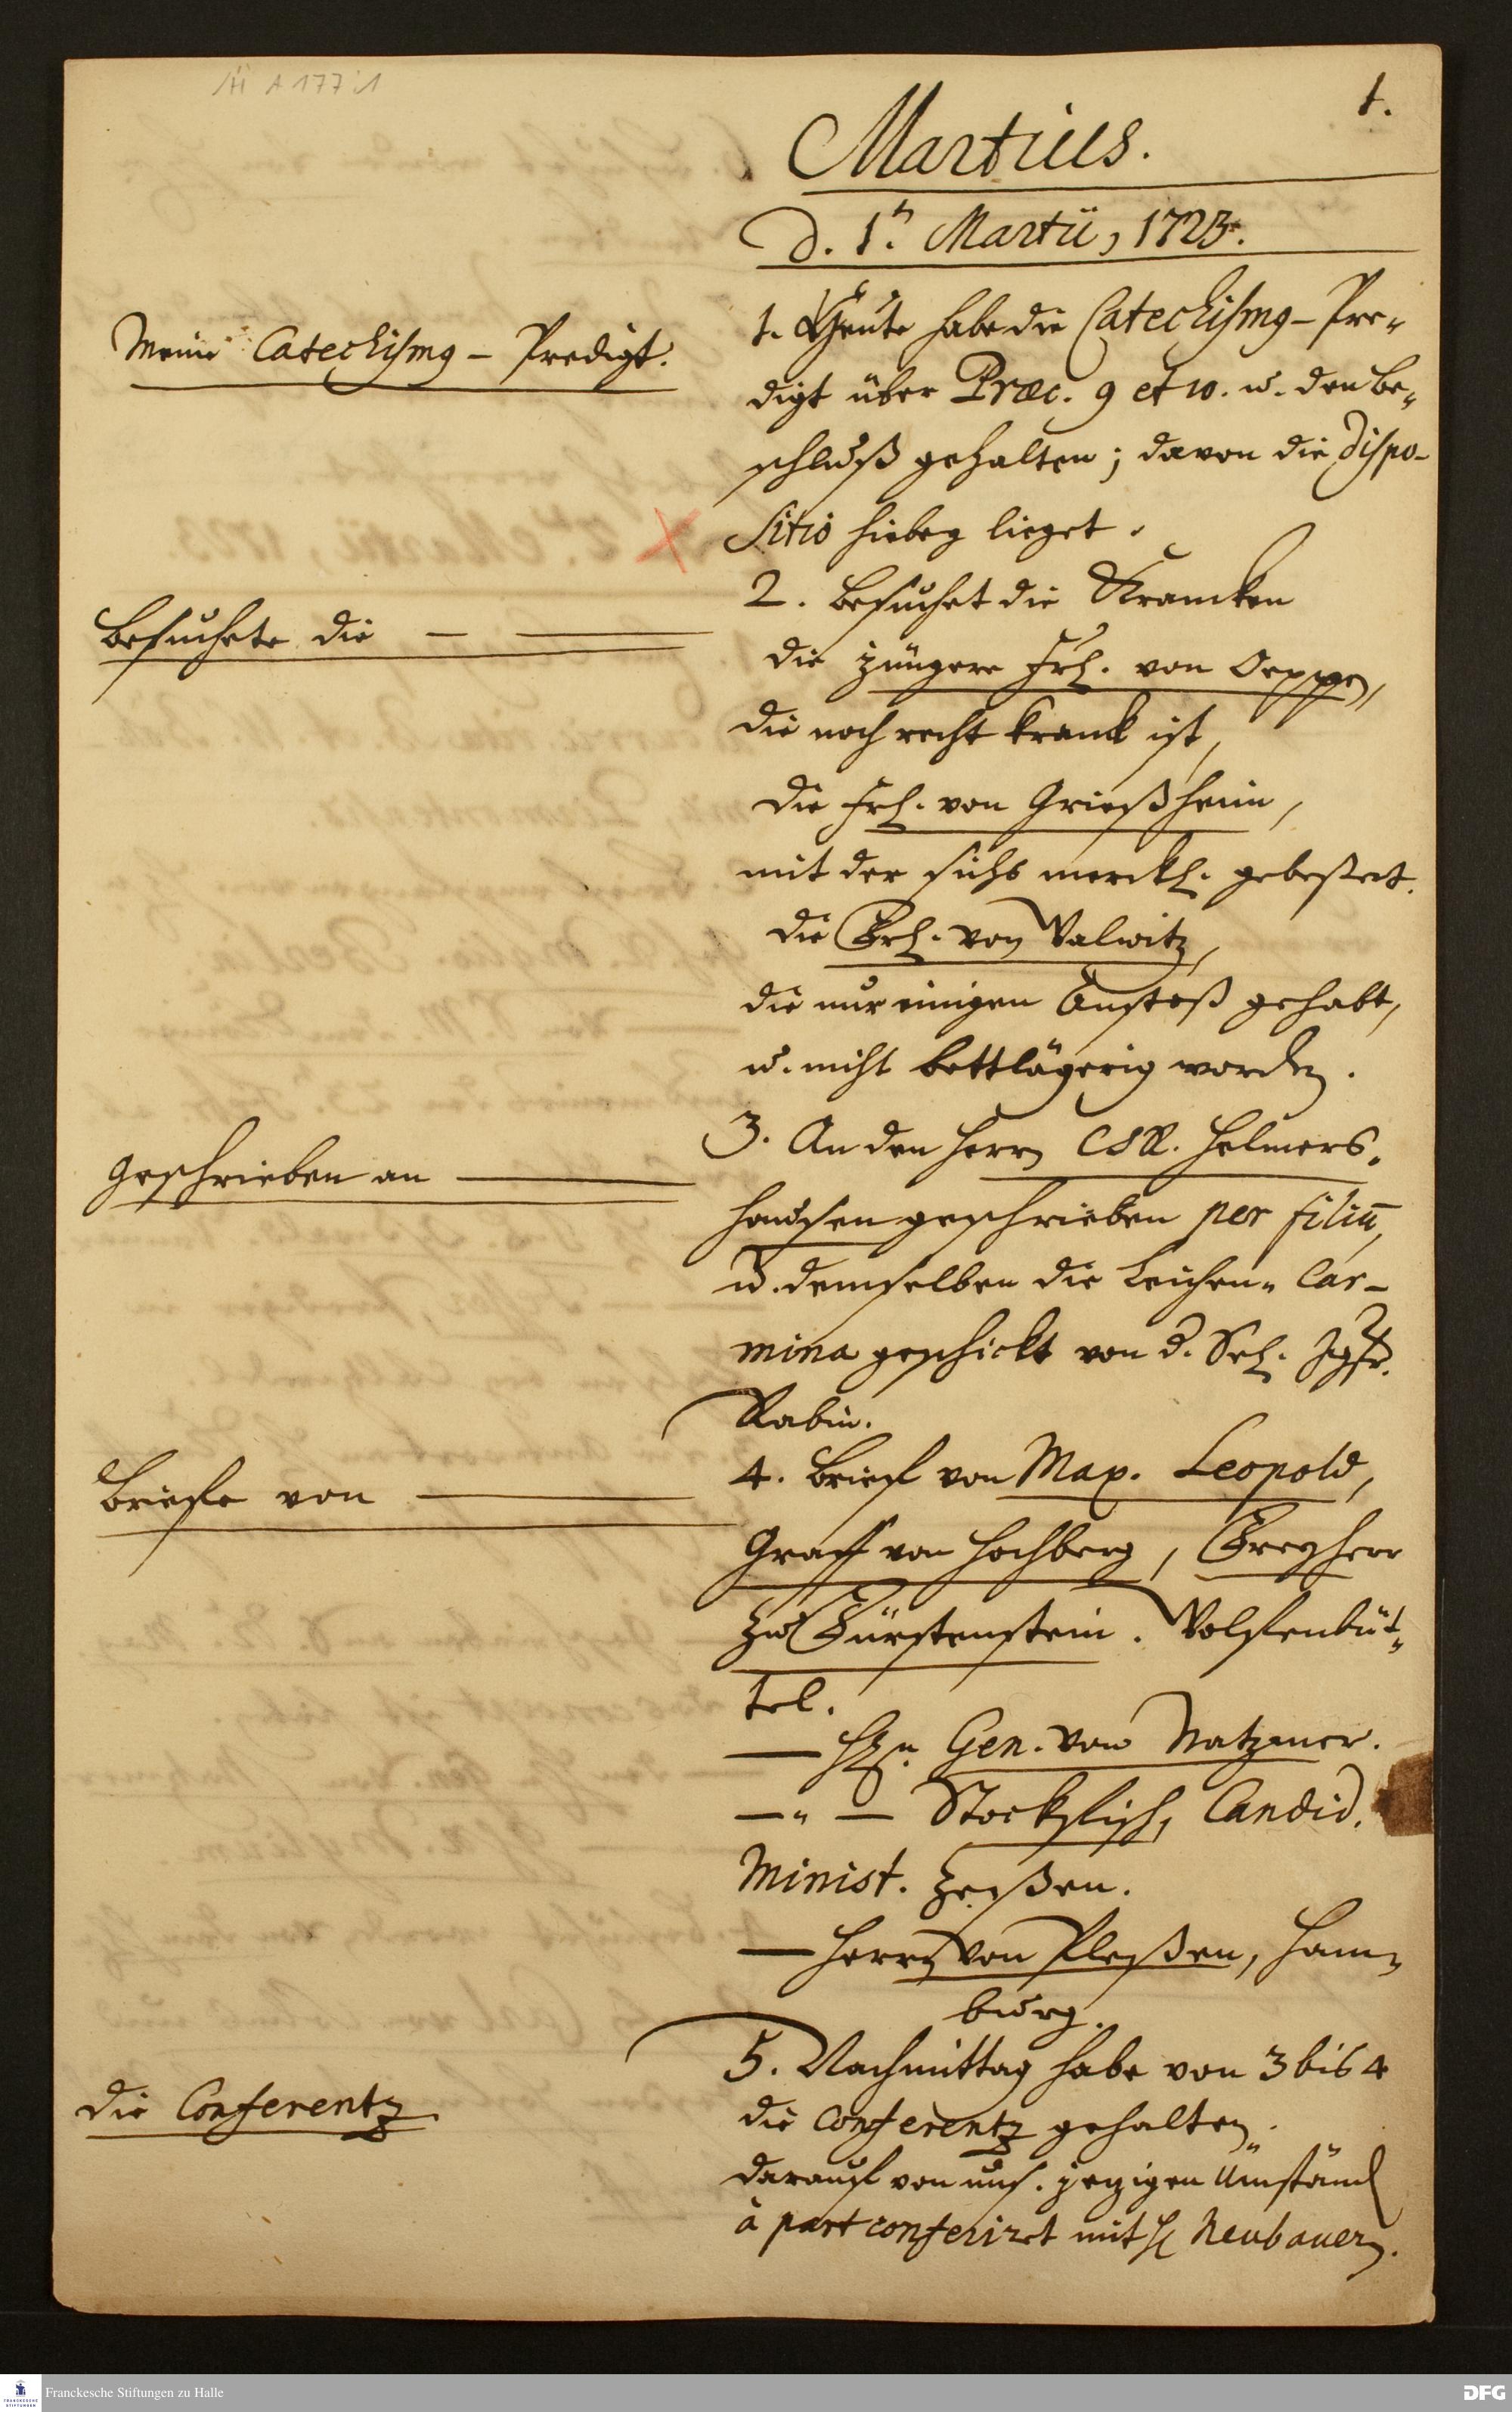 III A 177 : 1
1.
Martius.
d. 1.n Martii, 1723.
Meine Catechismg - Predigt.
1. Heute habe die Catechismg - Pre„
digt über Præc. 9 et 10. u. den be„
schluß gehalten; davon die Dispo-
sitio hiebey lieget.
besuchete die — —
2. besuchet die Krancken
die jüngere Frl. von Oeppen,
die noch recht kranck ist,
die Frl. von Grießheim,
mit der sichs merckl. gebeßert.
die Frl. von Valwitz,
die nur einigen Anstoß gehabt,
u. nicht bettlägerig worden.
geschrieben an —
3. An den Herrn CSR. Helmers„
hausen geschrieben per filiū,
u. demselben die Leichen„ Car-
mina geschickt von d. Sel. Jgfr.
Rabin.
briefe von —
4. brief von Max. Leopold,
Graff von Hochberg, Freyherr
zu Fürstenstein. Wolfenbüt„
tel.
— Hn. Gen. von Natzmer.
— „ — Stockflisch, Candid.
Minist. Zeißen.
— Herrn von Pleßen, Ham„
burg.
die Conferentz
5. Nachmittag habe von 3 bis 4
die Conferentz gehalten.
darauf von uns. jetzigen Umständ
à part conferiret mit H Neubauern.
Franckesche Stiftungen zu Halle
DFG